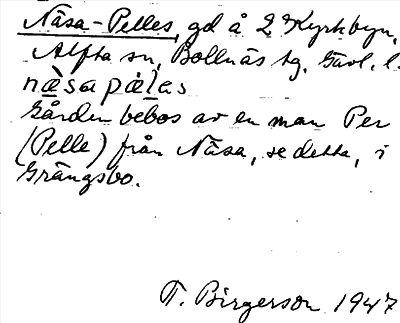 Näsa-Pelles, gd å 2 Kyrkbyn,
Alfta sn, Bollnäs tg, Gävl. l.
næ̀sapæ̀las
Gården bebos av en man Per
(Pelle) från Näsa, se detta, i
Grängsbo.
T. Birgerson 1947